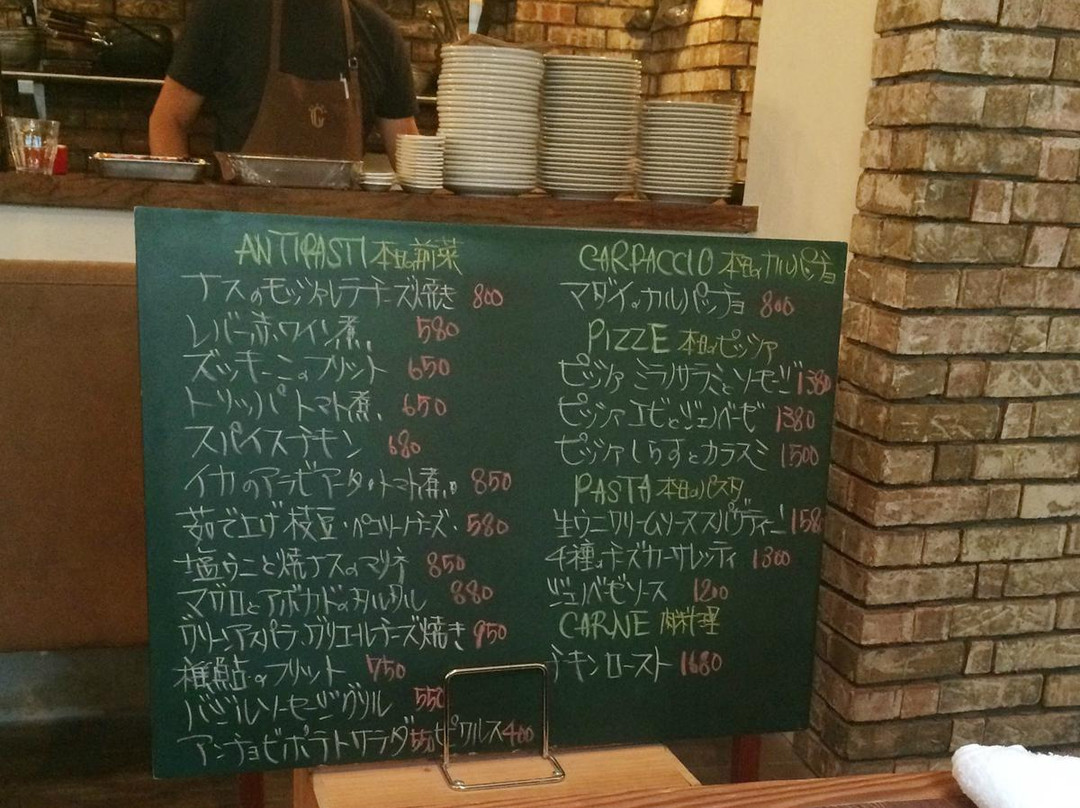 ANTIPASTI 本日の前菜
ナスのモッツァレラチーズ焼き 800
レバー赤ワイン煮。 580
ズッキーニのフリット 650
トリッパトマト煮。 650
スパイスチキン 680
イカのアラビアータ・トマト煮。 850
茹で上げ枝豆・ペコリーノチーズ・ 580
塩ウニと焼ナスのマリネ 850
マグロとアボカドのタルタル 880
グリーンアスパラ・グリエールチーズ焼き 950
稚鮎のフリット 750
バジルソーセージグリル 550
アンチョビポテトサラダ 550 ピクルス 400
CARPACCIO 本日のカルパッチョ
マダイのカルパッチョ 800
PIZZE 本日のピッツァ
ピッツァ ミラノサラミとソーセージ 1380
ピッツァ エビとジェノベーゼ 1380
ピッツァ しらすとカラスミ 1500
PASTA 本日のパスタ
生ウニクリームソーススパゲティーニ 158
4種のチーズカーサレッティ 1300
ジェノベーゼソース 1200
CARNE 肉料理
チキンロースト 1680